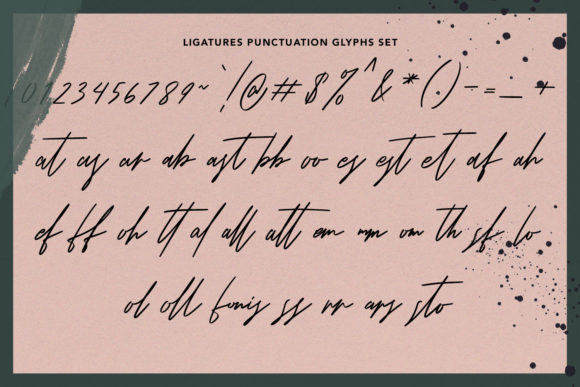 LIGATURES PUNCTUATION GLYPHS SET
0123456789~`!@#$%^&*()÷=_+
at as ar ab ast bb oo es est et af ah
ef ff oh tt al all att em mm om th sf lo
ol oll fonis ss rr ars sto